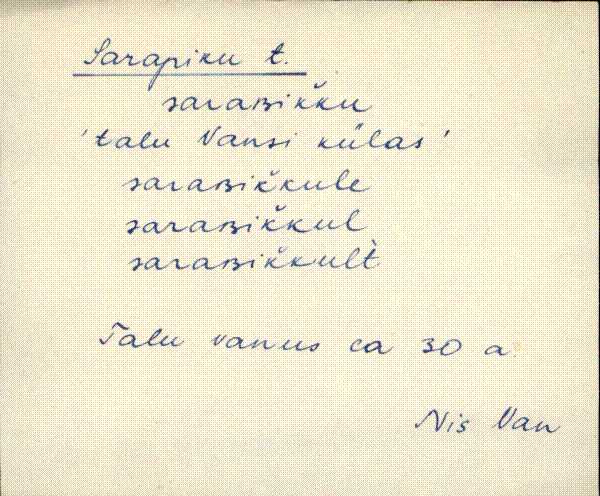 Sarapiku t.
saraʙik̆ku
'talu Vansi külas'
saraʙik̆kule
saraʙik̆kul
saraʙik̆kult̀
Talu vanus ca 30 a.
Nis Van